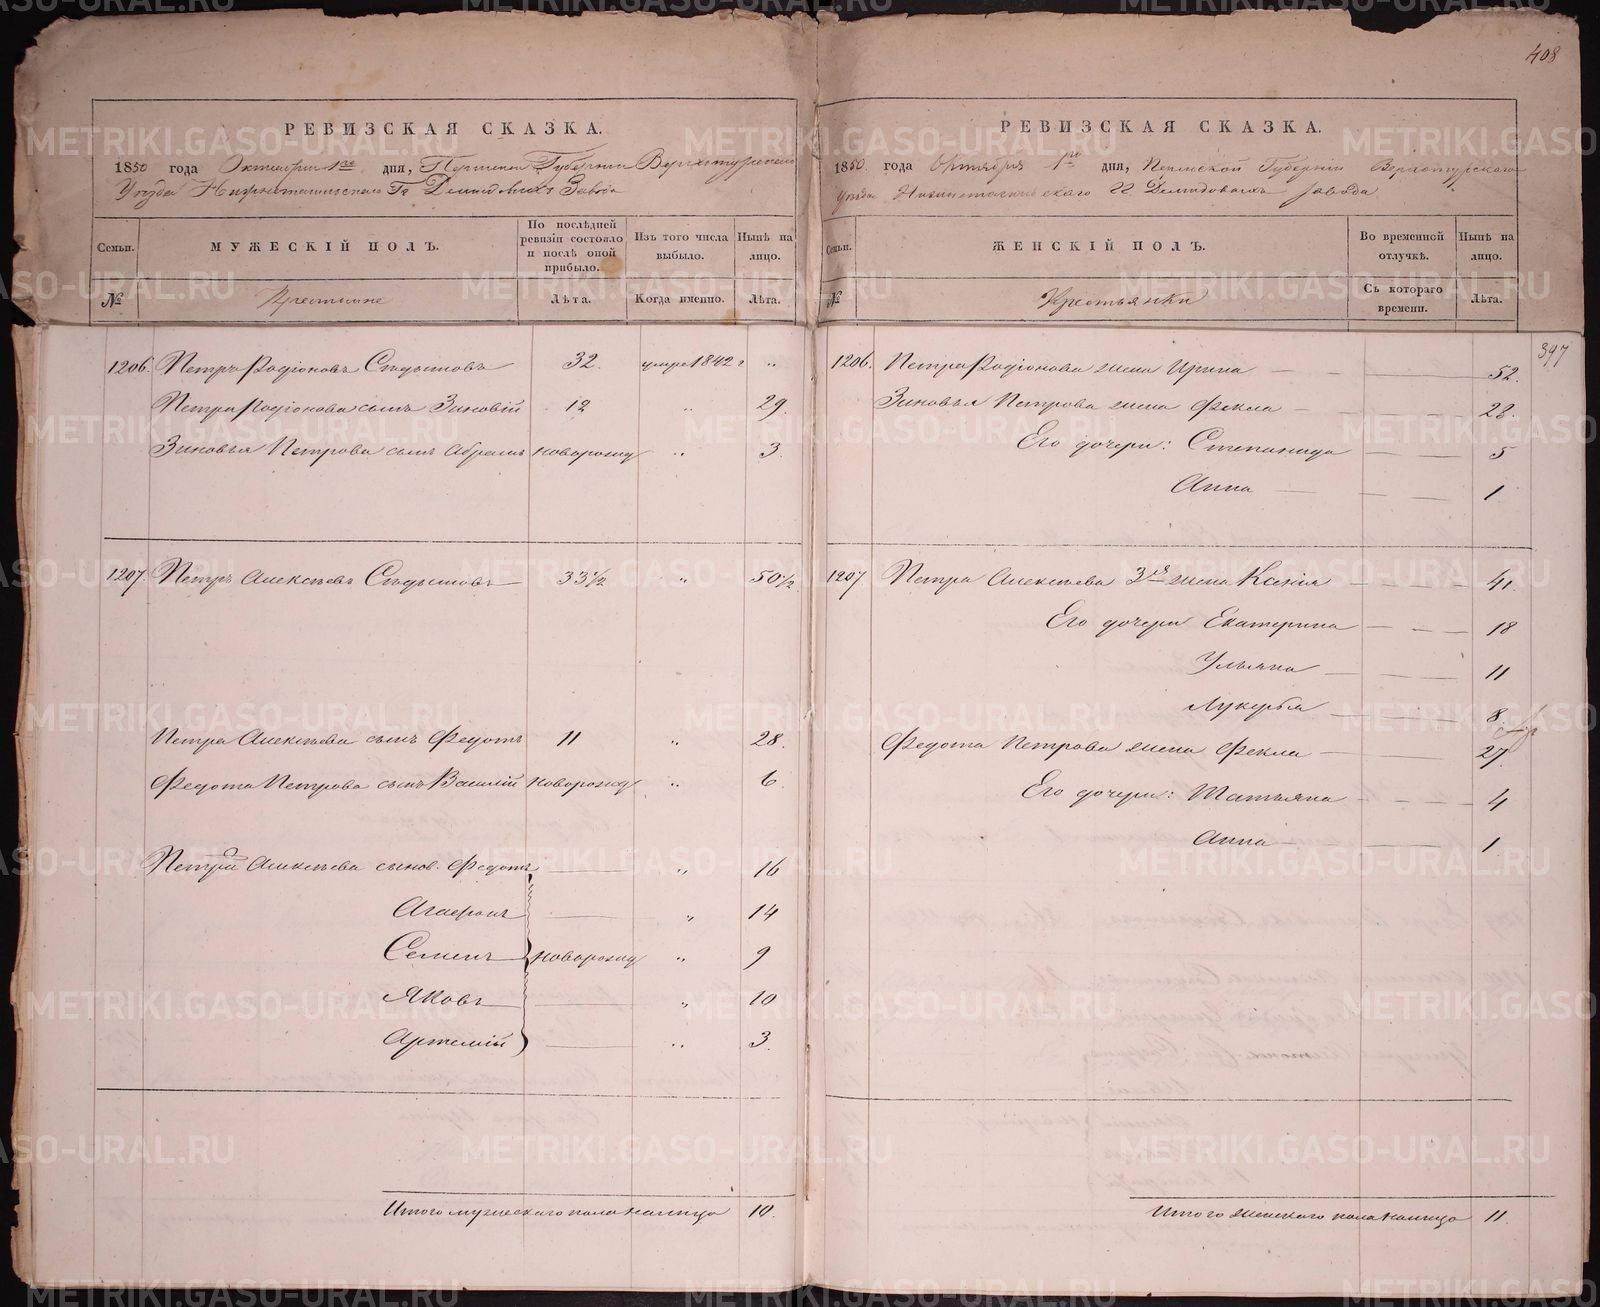 408
РЕВИЗСКАЯ СКАЗКА.
1850 года Октября 1го дня, Пермской Губернии Верхотурскаго
Уезда Нижнетагильскаго Гг Демидовыхъ Завода
Семьи.
МУЖЕСКІЙ ПОЛЪ.
По послѣдней ревизіи состояло и послѣ оной прибыло.
Изъ того числа выбыло.
Нынѣ на лицо.
№
Крестьяне
Лѣта.
Когда именно.
Лѣта.
1206. Петръ Родіоновъ 32. умеръ 1842 г „
Петра Родіонова сынъ Зиновій 12 „ 29.
Зиновья Петрова сынъ Абрамъ новорожд „ 3.
1207. Петръ Алексѣевъ 33½ „ 50½
Петра Алексѣева сынъ Федотъ 11 „ 28.
Федота Петрова сынъ Василій новорожд „ 6
Алексѣева сынов. Федотъ „ 16
Агафонъ „ 14
Семенъ новорожд „ 9
Яковъ „ 10
Артемій „ 3.
Итого мужескаго пола налицо 10.
РЕВИЗСКАЯ СКАЗКА.
1850. года Октября 1го дня, Пермской Губерніи Верхотурскаго
Уезда Нижнетагильскаго гг Демидовыхъ завода
Семьи.
ЖЕНСКІЙ ПОЛЪ.
Во временной отлучкѣ.
Нынѣ на лицо.
№
Крестьянки
Съ котораго времени.
Лѣта.
397
1206. Петра Родіонова жена Ирина 52.
Зиновья Петрова жена Фекла 28.
Его дочери: Степанида 5
Анна 1
1207 Петра Алексѣева 3я жена Ксенія 41.
Его дочери Екатерина 18
Ульяна 11
Лукерья 8.
Федота Петрова жена Фекла 27.
Его дочери: Татьяна 4
Анна 1
Итого женскаго пола налицо 11.
METRIKI.GASO-URAL.RU